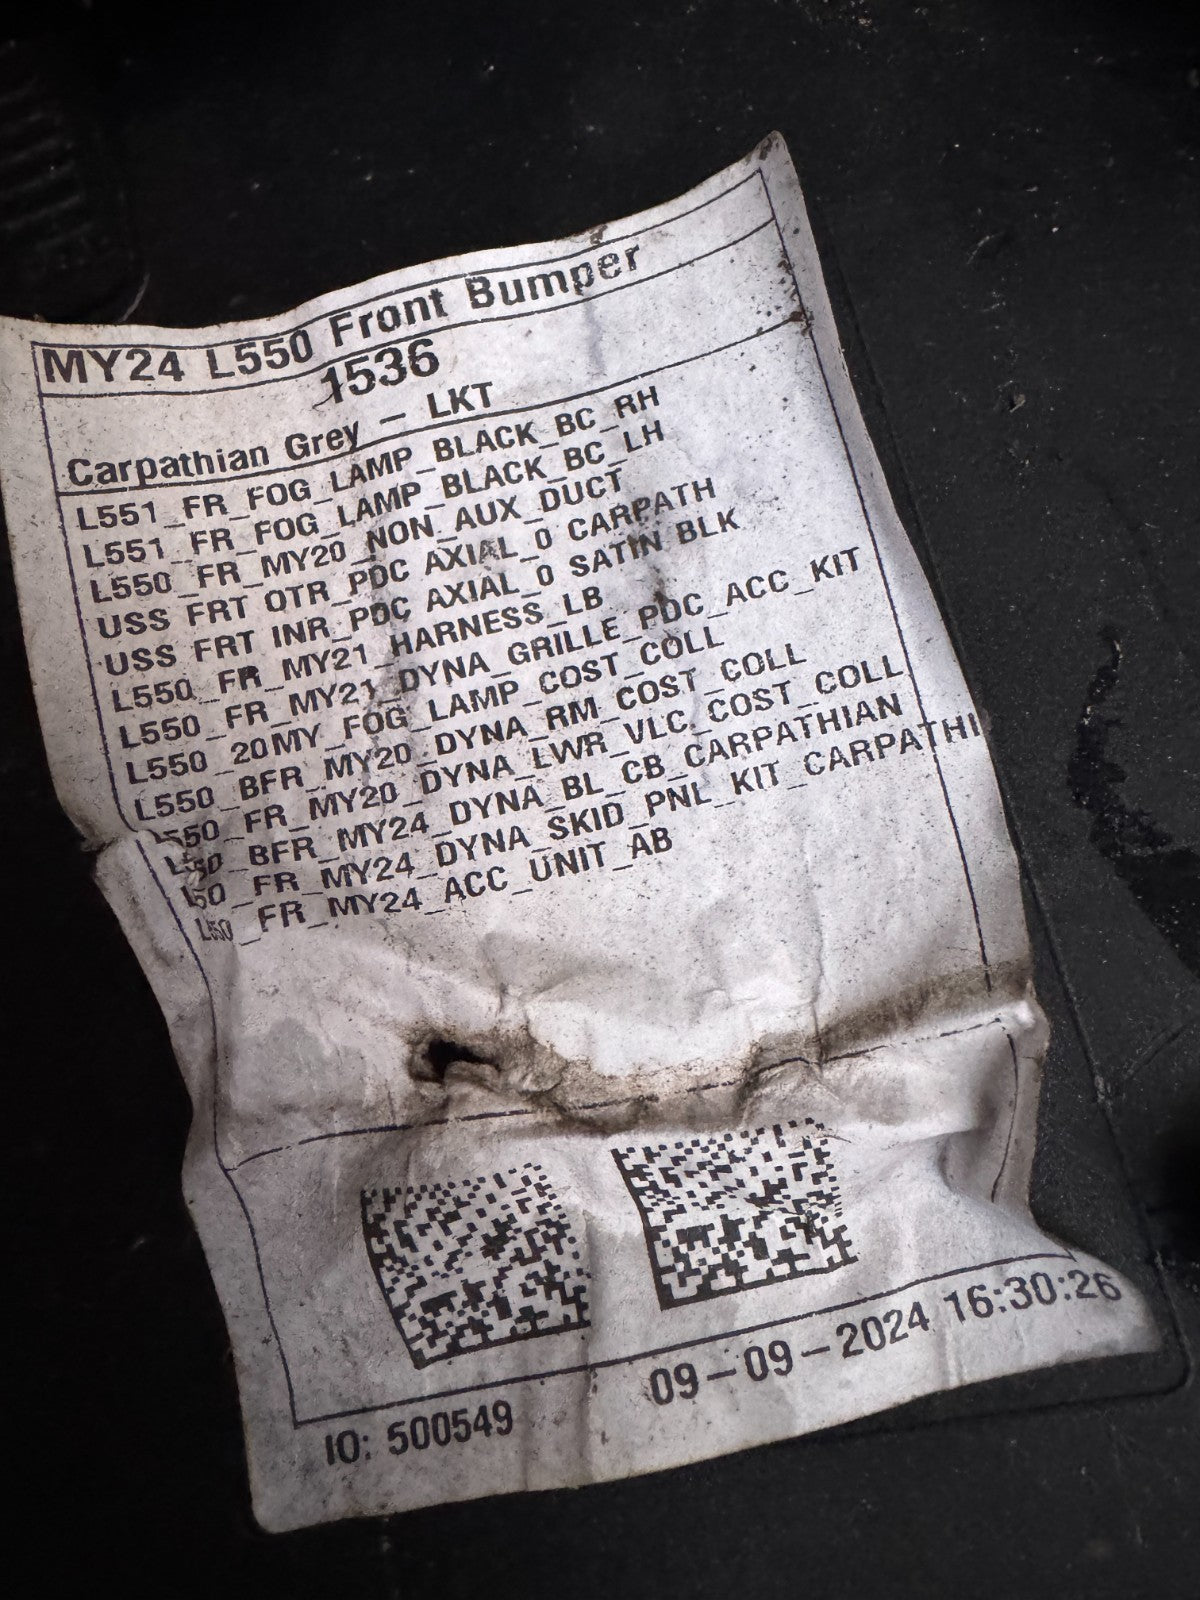 MY24 L550 Front Bumper
1536
Carpathian Grey - LKT
L551_FR_FOG_LAMP_BLACK_BC_RH
L551_FR_FOG_LAMP_BLACK_BC_LH
L550_FR_MY20_NON_AUX_DUCT
USS FRT OTR_PDC AXIAL_0 CARPATH
USS FRT INR_PDC AXIAL_0 SATIN BLK
L550_FR_MY21_HARNESS_LB
L550_FR_MY21_DYNA_GRILLE_PDC_ACC_KIT
L550_20MY_FOG_LAMP_COST_COLL
L550_BFR_MY20_DYNA_RM_COST_COLL
L550_FR_MY20_DYNA_LWR_VLC_COST_COLL
L550_BFR_MY24_DYNA_BL_CB_CARPATHIAN
L550_FR_MY24_DYNA_SKID_PNL_KIT_CARPATHI
L550_FR_MY24_ACC_UNIT_AB
IO: 500549
09-09-2024 16:30:26